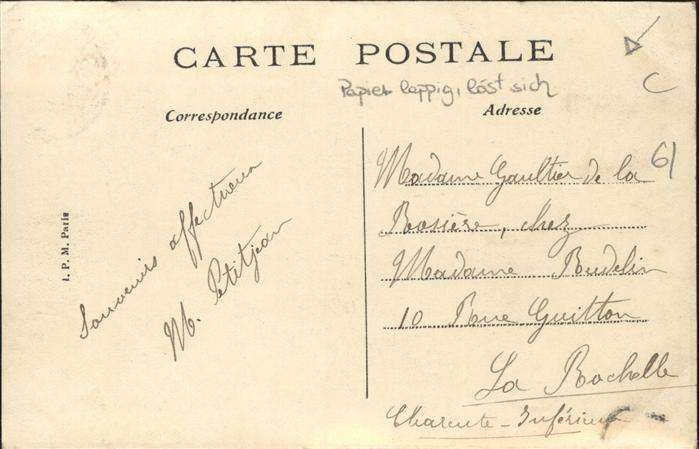 CARTE POSTALE
Papier lappig, löst sich
C
Correspondance
Adresse
6/
Souvenirs affectueux
M. Petitjean
I. P. M. Paris
Madame Gaultier de la
Rosière, chez
Madame Rudelin
10 Rue Guitton
La Rochelle
Charente-Inférieure